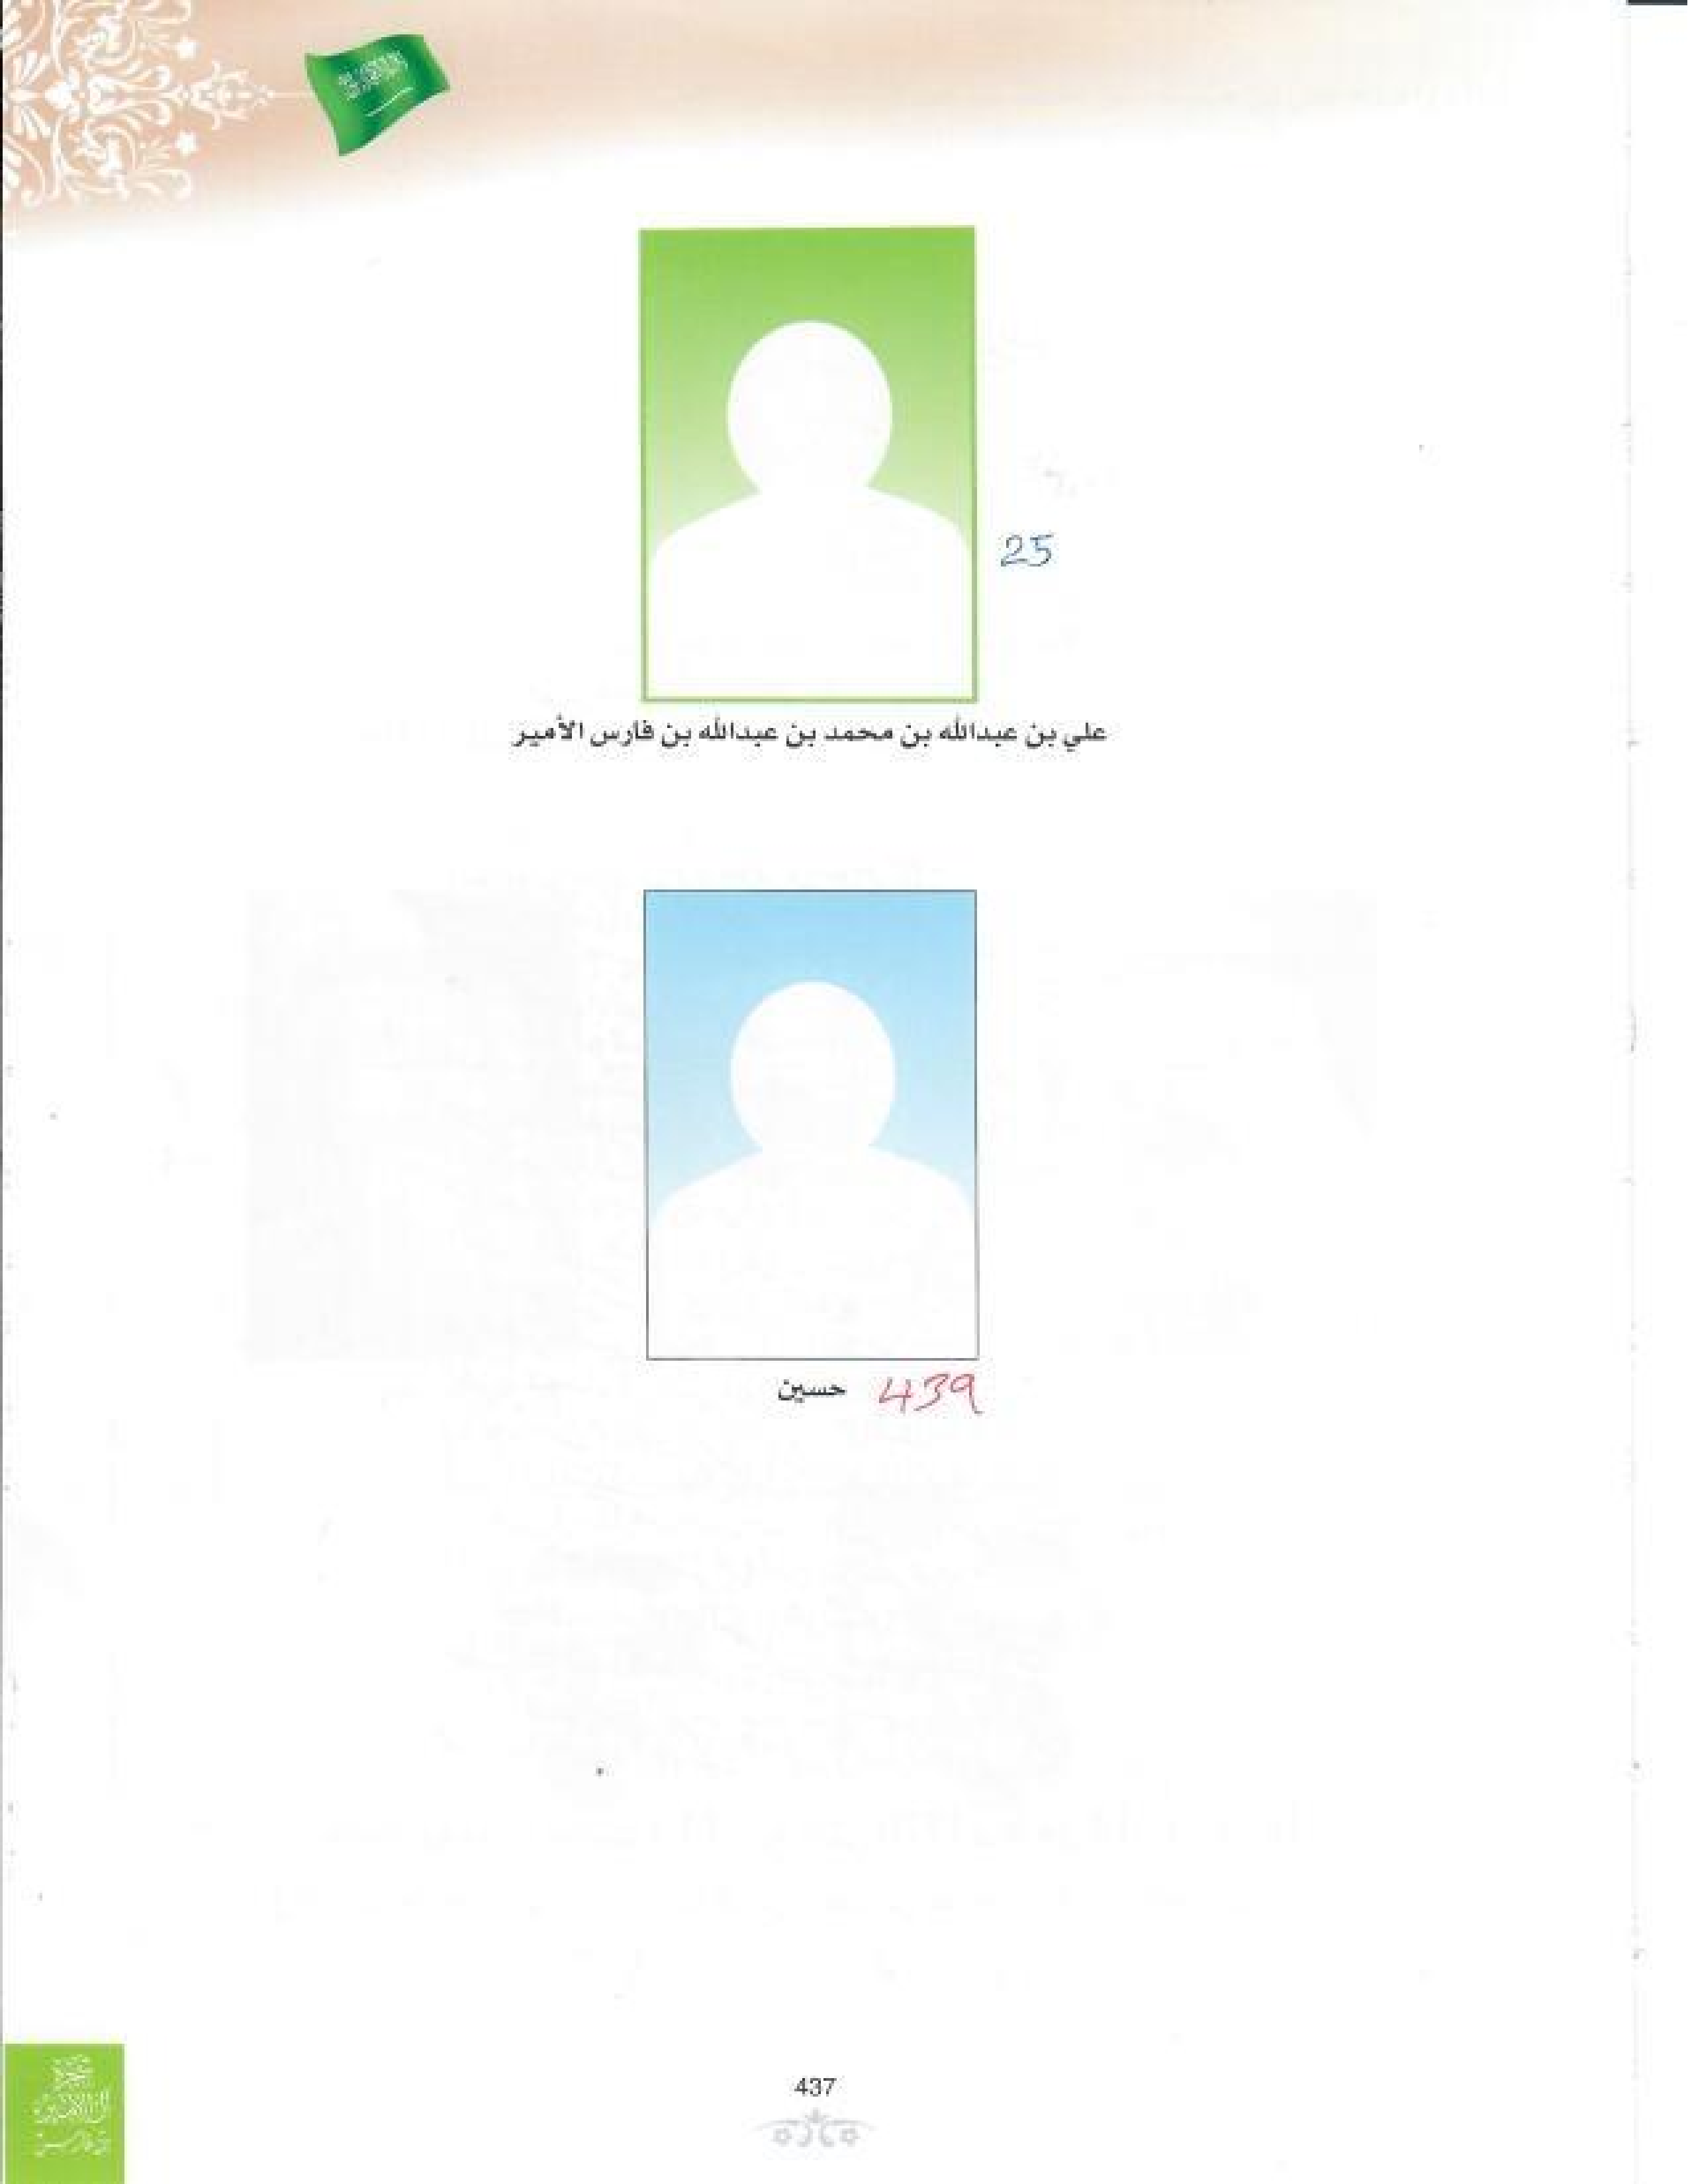 25
علي بن عبدالله بن محمد بن عبدالله بن فارس الأمير
حسين 439
437